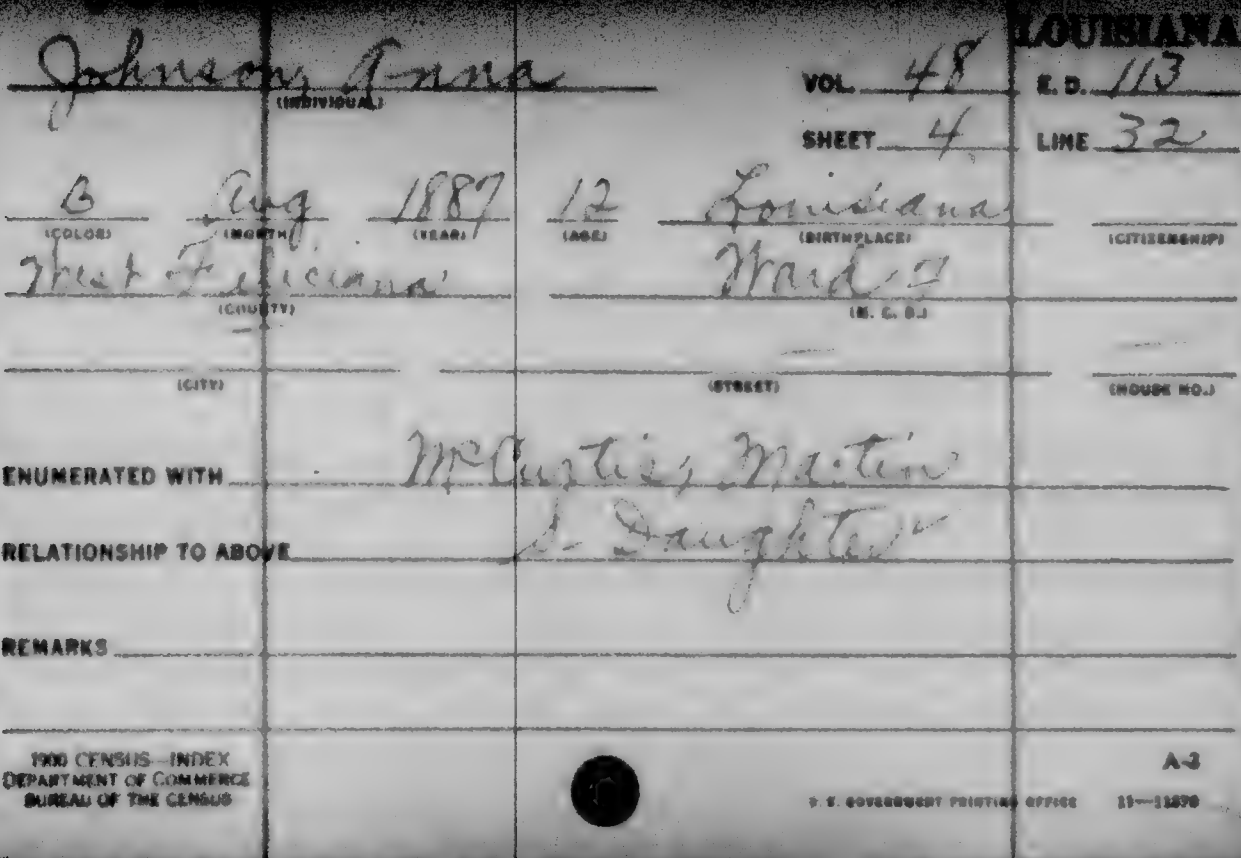 LOUISIANA
Johnson, Anna VOL. 48 E. D. 113
(INDIVIDUAL)
SHEET 4 LINE 32
B Aug 1887 12 Louisiana
(COLOR) (MONTH) (YEAR) (AGE) (BIRTHPLACE) (CITIZENSHIP)
West Feliciana Ward 7
(COUNTY) (M. C. D.)
— — —
(CITY) (STREET) (HOUSE NO.)
ENUMERATED WITH McCurtis, Martin
RELATIONSHIP TO ABOVE S. Daughter
REMARKS
1900 CENSUS—INDEX A-3
DEPARTMENT OF COMMERCE
BUREAU OF THE CENSUS U. S. GOVERNMENT PRINTING OFFICE